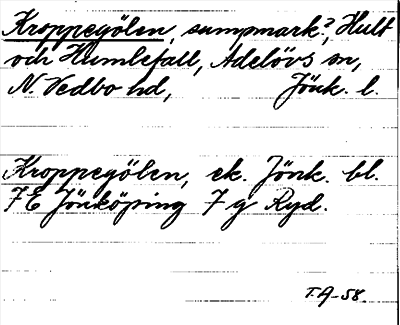 Kroppegölen, sumpmark?, Hult
och Humlefall, Adelövs sn,
N. Vedbo hd, Jönk. l.
Kroppegölen, ek. Jönk. bl.
7E Jönköping 7 g Ryd.
T.A-58.